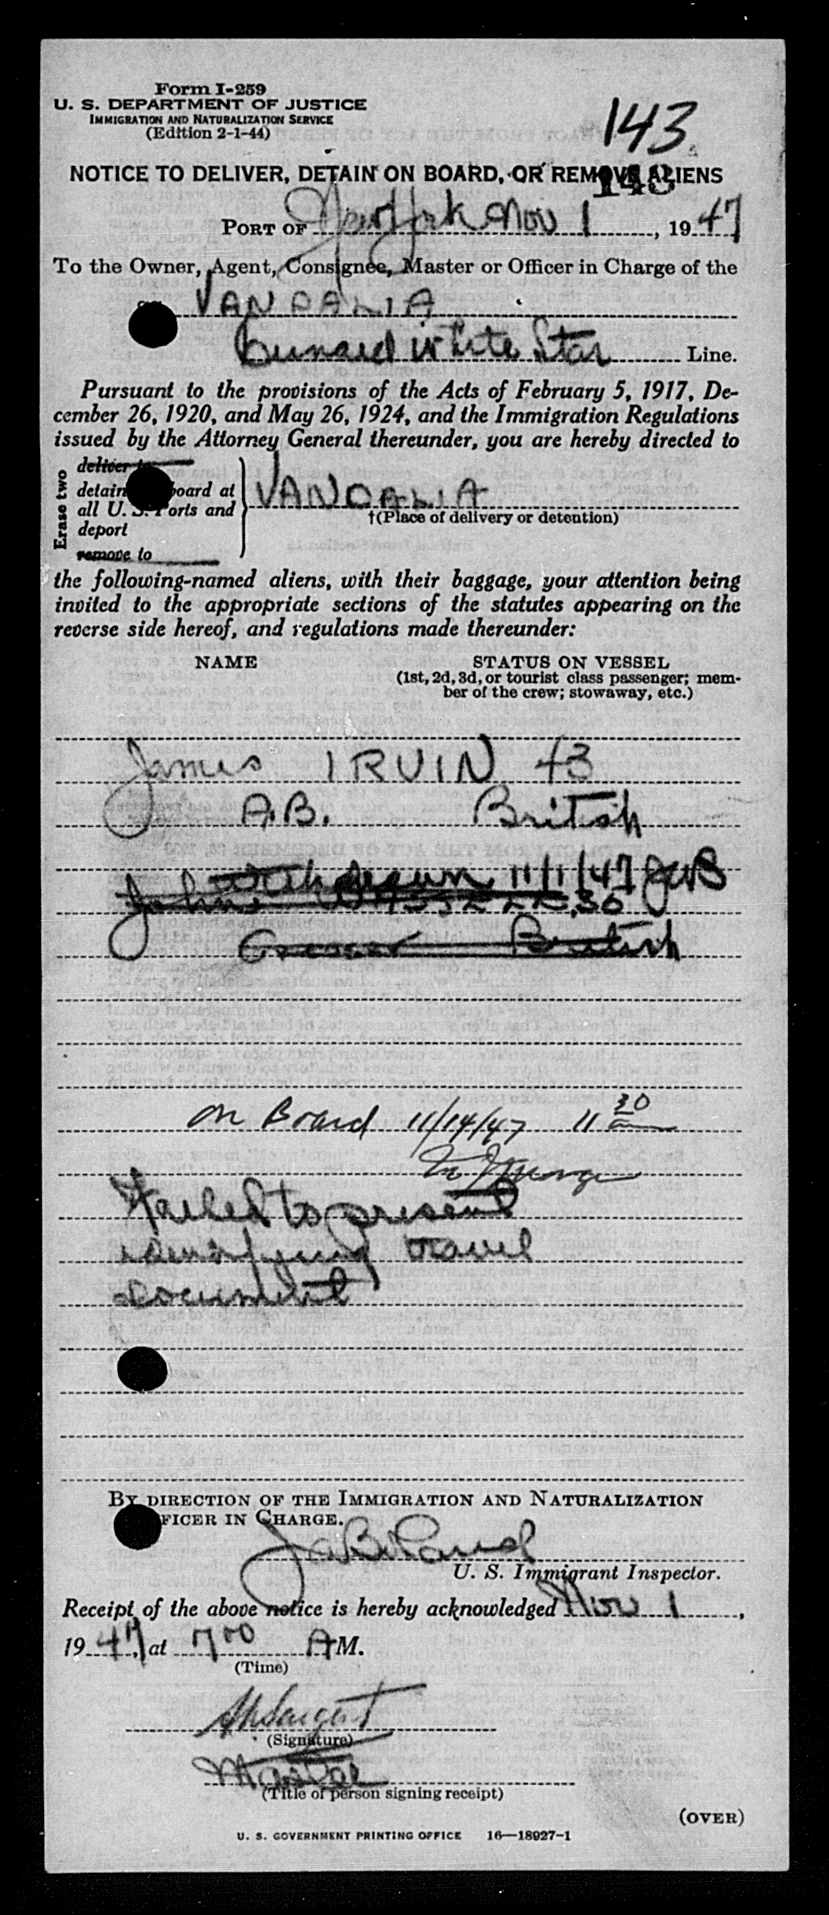 Form I-259
U. S. DEPARTMENT OF JUSTICE
IMMIGRATION AND NATURALIZATION SERVICE
(Edition 2-1-44)
143
NOTICE TO DELIVER, DETAIN ON BOARD, OR REMOVE ALIENS
143
PORT OF New York Nov 1, 1947
To the Owner, Agent, Consignee, Master or Officer in Charge of the
VANDALIA
Cunard White Star Line.
Pursuant to the provisions of the Acts of February 5, 1917, De-
cember 26, 1920, and May 26, 1924, and the Immigration Regulations
issued by the Attorney General thereunder, you are hereby directed to
Erase two
deliver to
detain board at
all U. S. Ports and
deport
remove to
VANDALIA
†(Place of delivery or detention)
the following-named aliens, with their baggage, your attention being
invited to the appropriate sections of the statutes appearing on the
reverse side hereof, and regulations made thereunder:
NAME STATUS ON VESSEL
(1st, 2d, 3d, or tourist class passenger; mem-
ber of the crew; stowaway, etc.)
James IRVIN 43
A.B. British
Withdrawn 11/1/47 JWB
John 30
British
On Board 11/14/47 11 30 am
Failed to present
identifying travel
document
BY DIRECTION OF THE IMMIGRATION AND NATURALIZATION
FICER IN CHARGE.
U. S. Immigrant Inspector.
Receipt of the above notice is hereby acknowledged Nov 1,
1947, at 7 00 AM.
(Time)
Sargent
(Signature)
Master
(Title of person signing receipt)
(OVER)
U. S. GOVERNMENT PRINTING OFFICE 16—18927-1